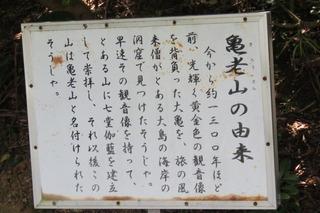 亀老山の由来
今から約一三〇〇年ほど
前、光輝く黄金色の観音像
を背負った大亀を、旅の風
来僧が、とある大島の海岸の
洞窟で見つけたそうじゃ。
早速その観音像を持って、
とある山に七堂伽藍を建立
して崇拝し、それ以後この
山は亀老山と名付けられた
そうじゃ。